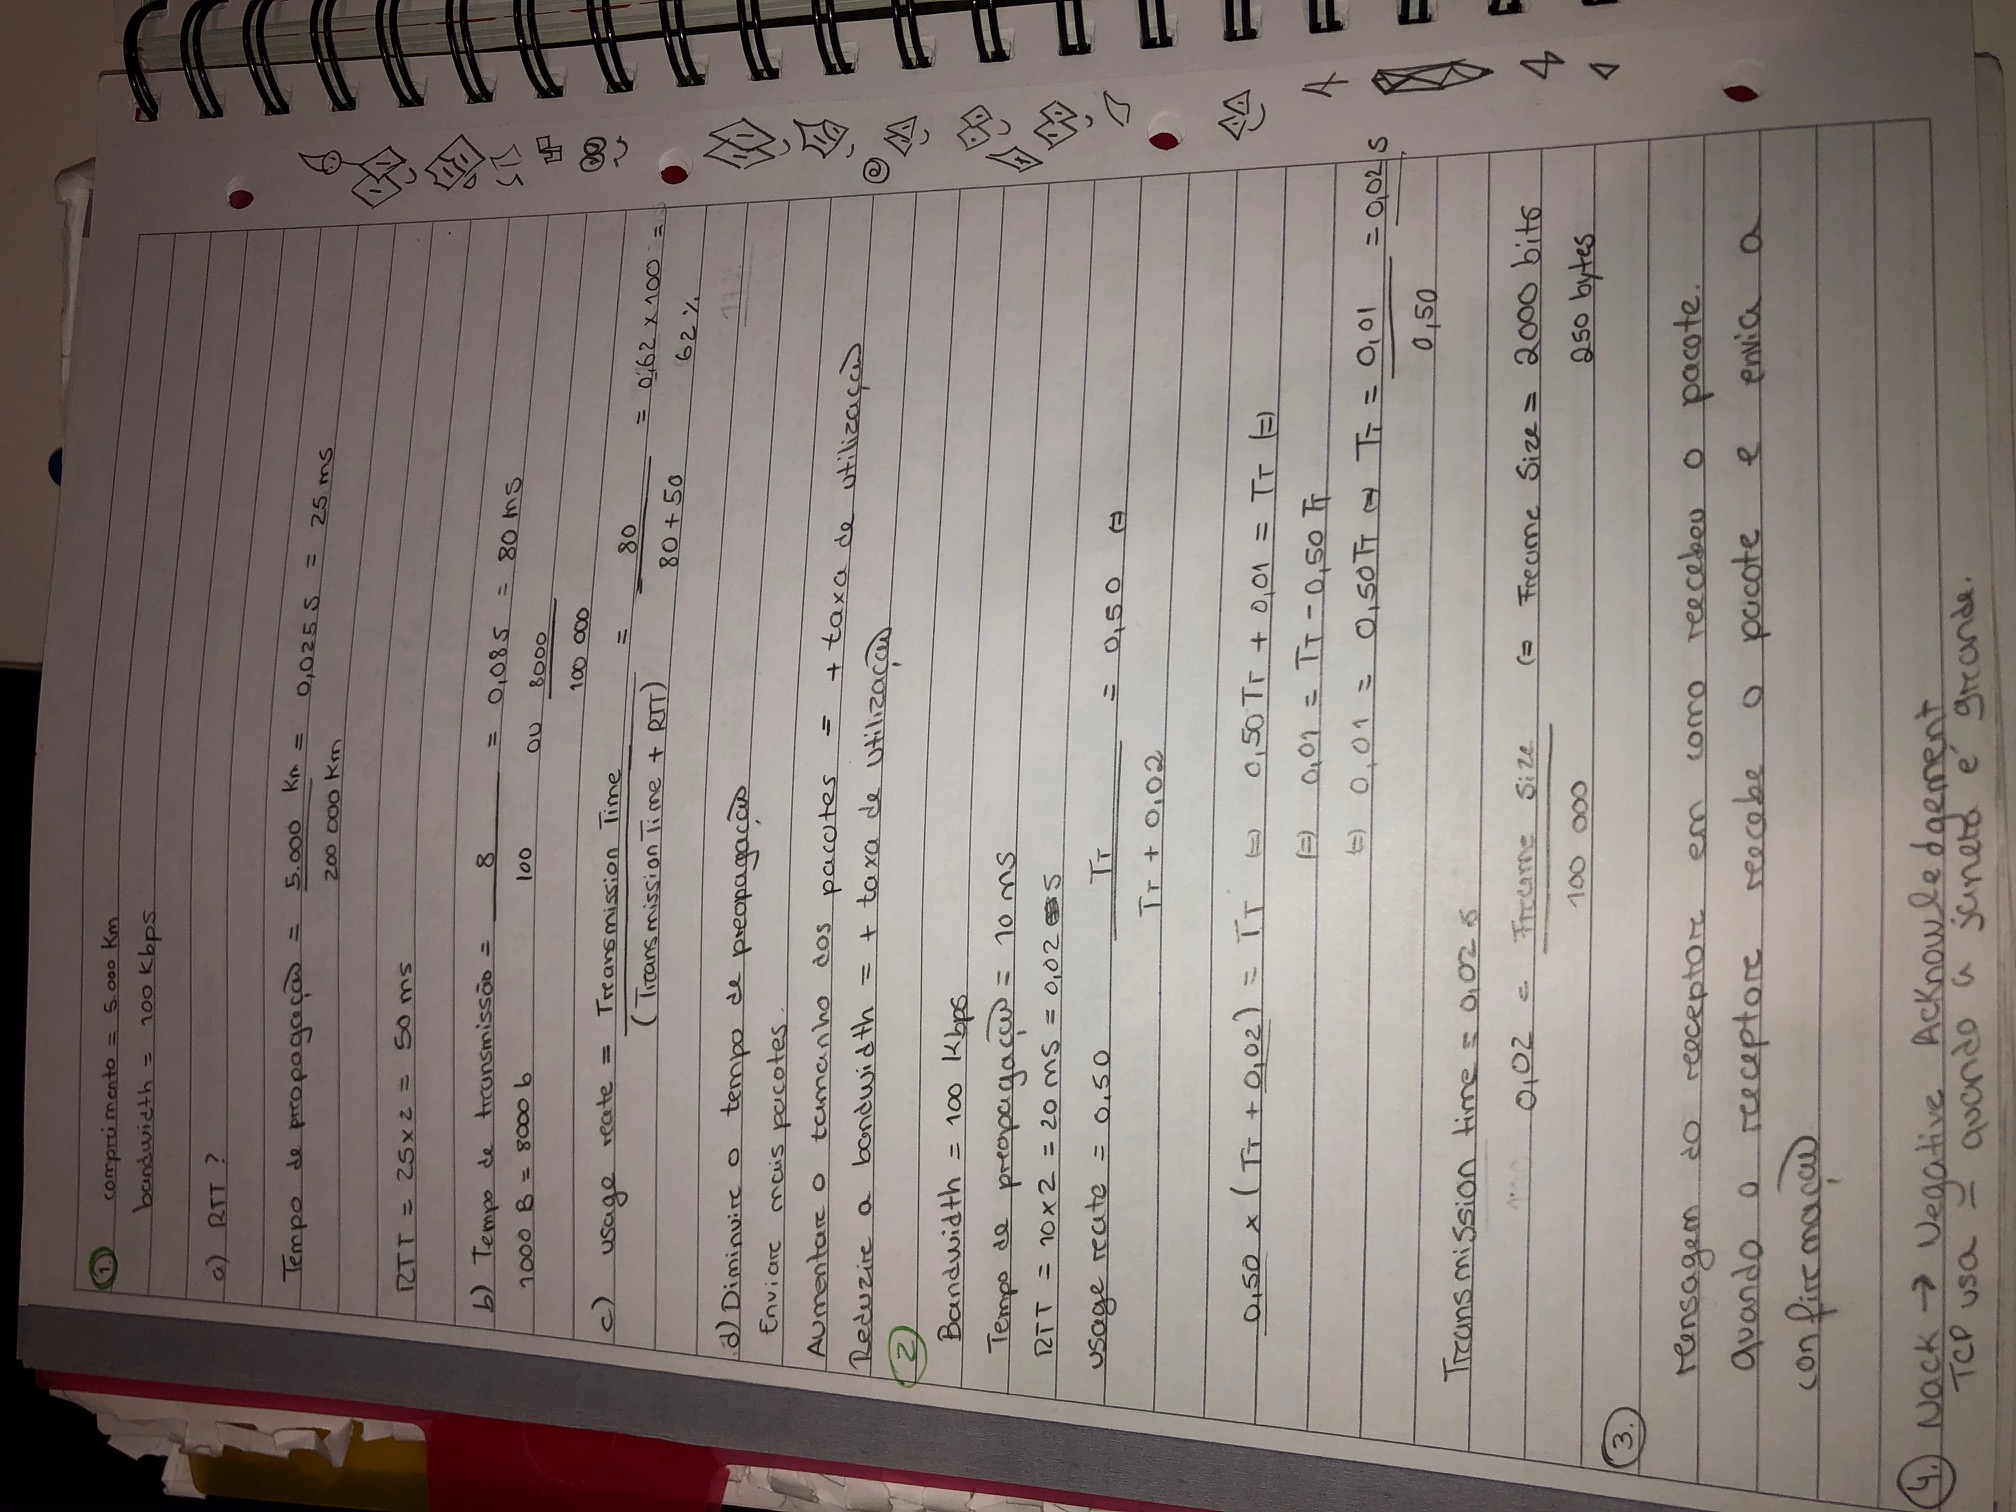 1. comprimento = 5.000 Km
bandwidth = 100 Kbps
a) RTT ?
Tempo de propagação = 5.000 Km / 200 000 Km = 0,025 s = 25 ms
RTT = 25 x 2 = 50 ms
b) Tempo de transmissão = 8 / 100 = 0,08 s = 80 ms
1000 B = 8000 b ou 8000 / 100 000
c) usage rate = Transmission Time / (Transmission Time + RTT) = 80 / 80 + 50 = 0,62 x 100 =
62 %
d) Diminuir o tempo de propagação
Enviar mais pacotes.
Aumentar o tamanho dos pacotes = + taxa de utilização
Reduzir a bandwidth = + taxa de utilização
2
Bandwidth = 100 Kbps
Tempo de propagação = 10 ms
RTT = 10 x 2 = 20 ms = 0,02 s
usage rate = 0,50 TT / TT + 0,02 = 0,50 (=)
0,50 x (TT + 0,02) = TT (=) 0,50 TT + 0,01 = TT (=)
(=) 0,01 = TT - 0,50 TT
(=) 0,01 = 0,50 TT (=) TT = 0,01 / 0,50 = 0,02 s
Transmission time = 0,02 s
0,02 = Frame Size / 100 000 (=) Frame Size = 2000 bits
250 bytes
3.
Mensagem do receptor em como recebeu o pacote.
quando o receptor recebe o pacote e envia a
confirmação
4. Nack → Negative Acknowledgement
TCP usa = quando a janela é grande.